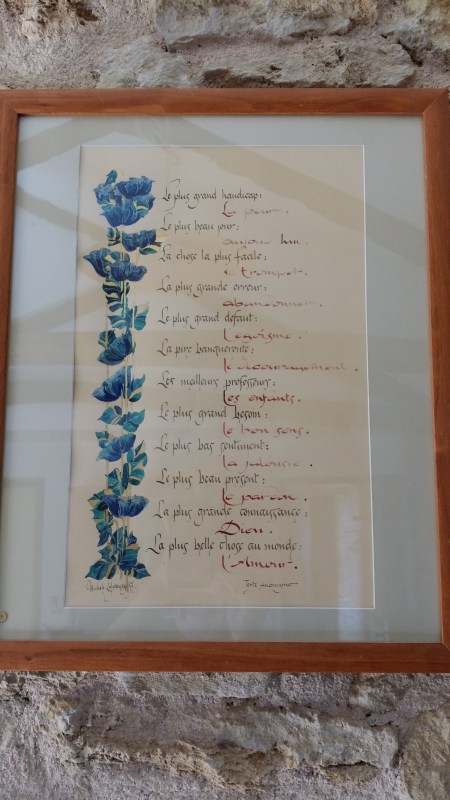 Le plus grand handicap:
La peur.
Le plus beau jour:
aujourd'hui.
La chose la plus facile:
se tromper.
La plus grande erreur:
abandonner.
Le plus grand défaut:
L'égoïsme.
La pire banqueroute:
le découragement.
Les meilleurs professeurs:
Les enfants.
Le plus grand besoin:
Le bon sens.
Le plus bas sentiment:
La jalousie.
Le plus beau présent:
Le pardon.
La plus grande connaissance:
Dieu.
La plus belle chose au monde:
L'Amour.
Texte Anonyme